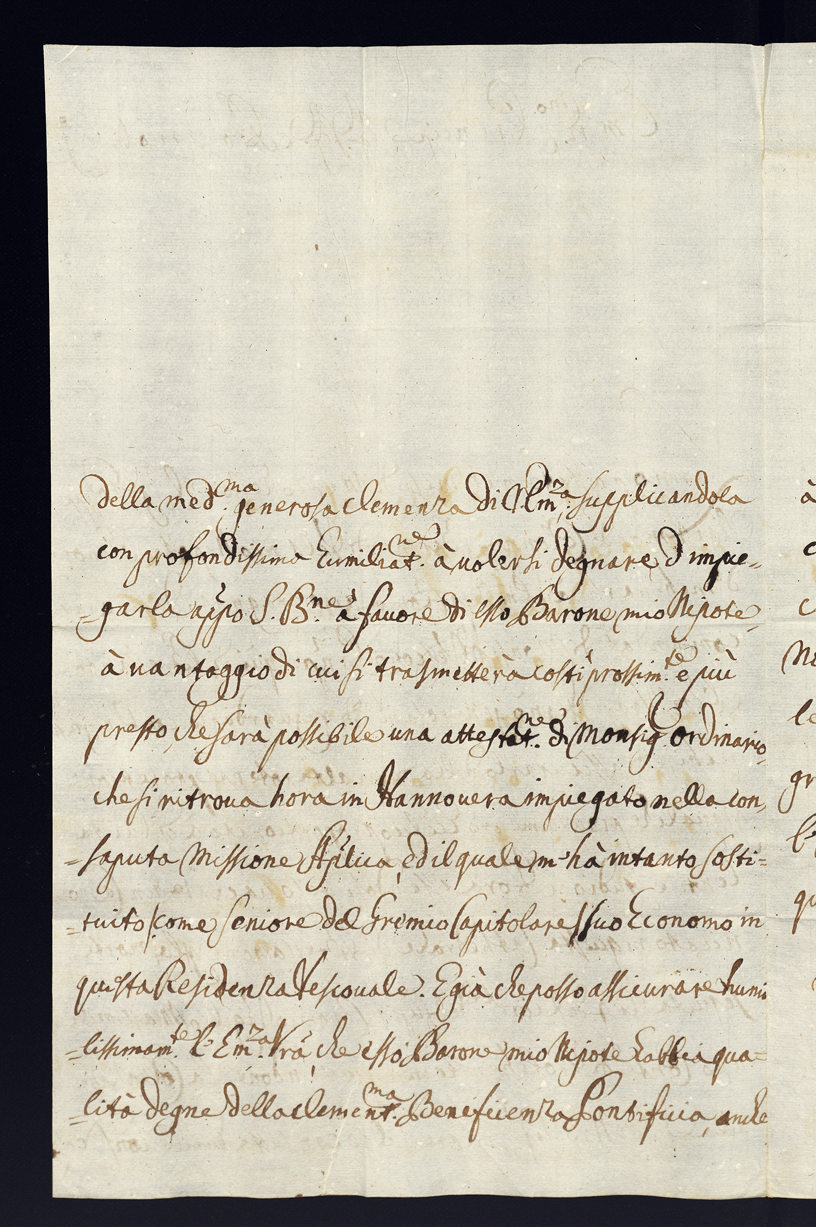 della med.ma generosa clemenza di V. Em.za, supplicandola
con profondissima humiliat.ne à volersi degnare d'impie-
-garla app̃o S. B.ne à favore di esso Barone mio Nipote,
à vantaggio di cui si trasmetterà costì prossim.te e più
presto, che sarà possibile una attestat.ne di Monsig.r Ordinario,
che si ritrova hora in Hannovera impiegato nella con-
-saputa Missione Ap̃lica, ed il quale m'hà intanto sosti=
-tuito /:come Seniore del Gremio Capitolare:/ suo Economo in
questa Residenza Vescovale. E già che posso assicurare humi
-lissimam.te l'Em.za Vrã, che esso Barone mio Nipote habbia qua=
-lità degne della clement.ma Beneficienza Pontificia, anche
à